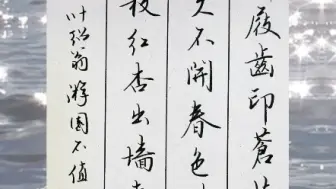 屐齒印蒼
久不開春色
枝红杏出墙
叶绍翁游園不值